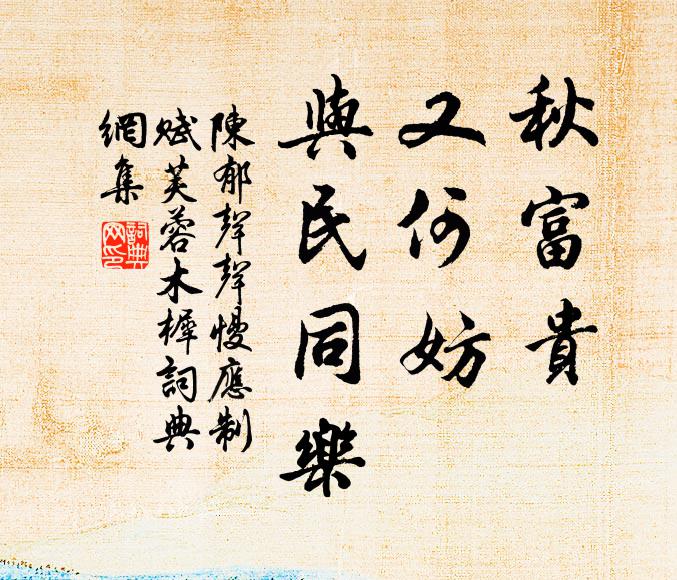 秋富貴
又何妨
與民同樂
陳郁聲聲慢應制
賦芙蓉木樨詞典
網集
詞典
网印